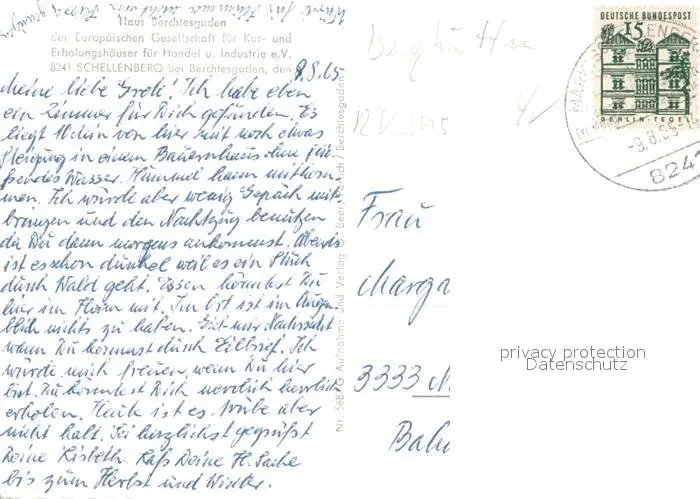 Haus Berchtesgaden
der Europäischen Gesellschaft für Kur- und
Erholungshäuser für Handel u. Industrie e.V.
8241 SCHELLENBERG bei Berchtesgaden, den
9.8.65
Meine liebe Grete! Ich habe eben
ein Zimmer für Dich gefunden. Es
liegt 10 Min von hier mit noch etwas
Steigung in einem Bauernhaus ohne flie-
ßendes Wasser. Hümmel kann mitkom-
men. Ich würde aber wenig Gepäck mit
bringen und den Nachtzug benutzen
da Du dann morgens ankommst. Abends
ist es schon dunkel weil es ein Stück
durch Wald geht. Essen könntest Du
hier im Heim mit. Im Ort ist im Augen
blick nichts zu haben. Gib mir Nachricht
wann Du kommst durch Eilbrief. Ich
würde mich freuen, wenn Du hier
bist. Du könntest Dich herrlich
erholen. Heute ist es trübe aber
nicht kalt. Sei herzlichst gegrüßt
Deine Lisbeth. Laß Deine Fl. Sache
bis zum Herbst und Winter.
Nr. 568 G Aufnahme und Verlag Berchtesgaden
DEUTSCHE BUNDESPOST
15
BERLIN-TEGEL
-9.8.65-
8241
Frau
Marga
3333
Bah
privacy protection
Datenschutz